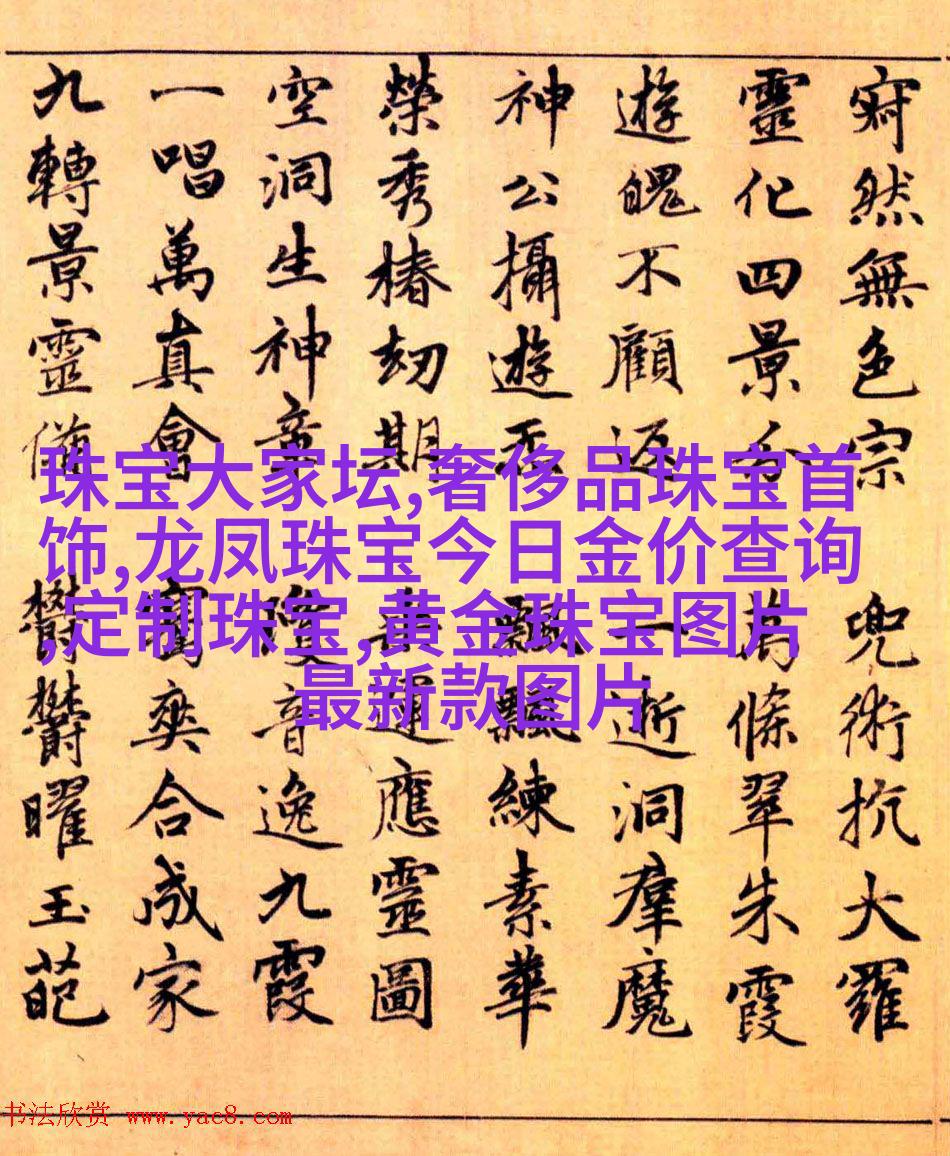 寂然無色宗 兜術抗大羅
靈化四景分 萬條翠朱霞
遊魄不顧返 一逝洞羣魔
神公攝遊炁 飄飄練素華
榮秀椿劫期 運應靈圖
空洞生神童 音逸九霞
一唱萬真會 爽合成家
九轉景靈備 鬱鬱曜玉葩
珠宝大家坛,奢侈品珠宝首
饰,龙凤珠宝今日金价查询
,定制珠宝,黄金珠宝图片
最新款图片
书法欣赏 www.yac8.com